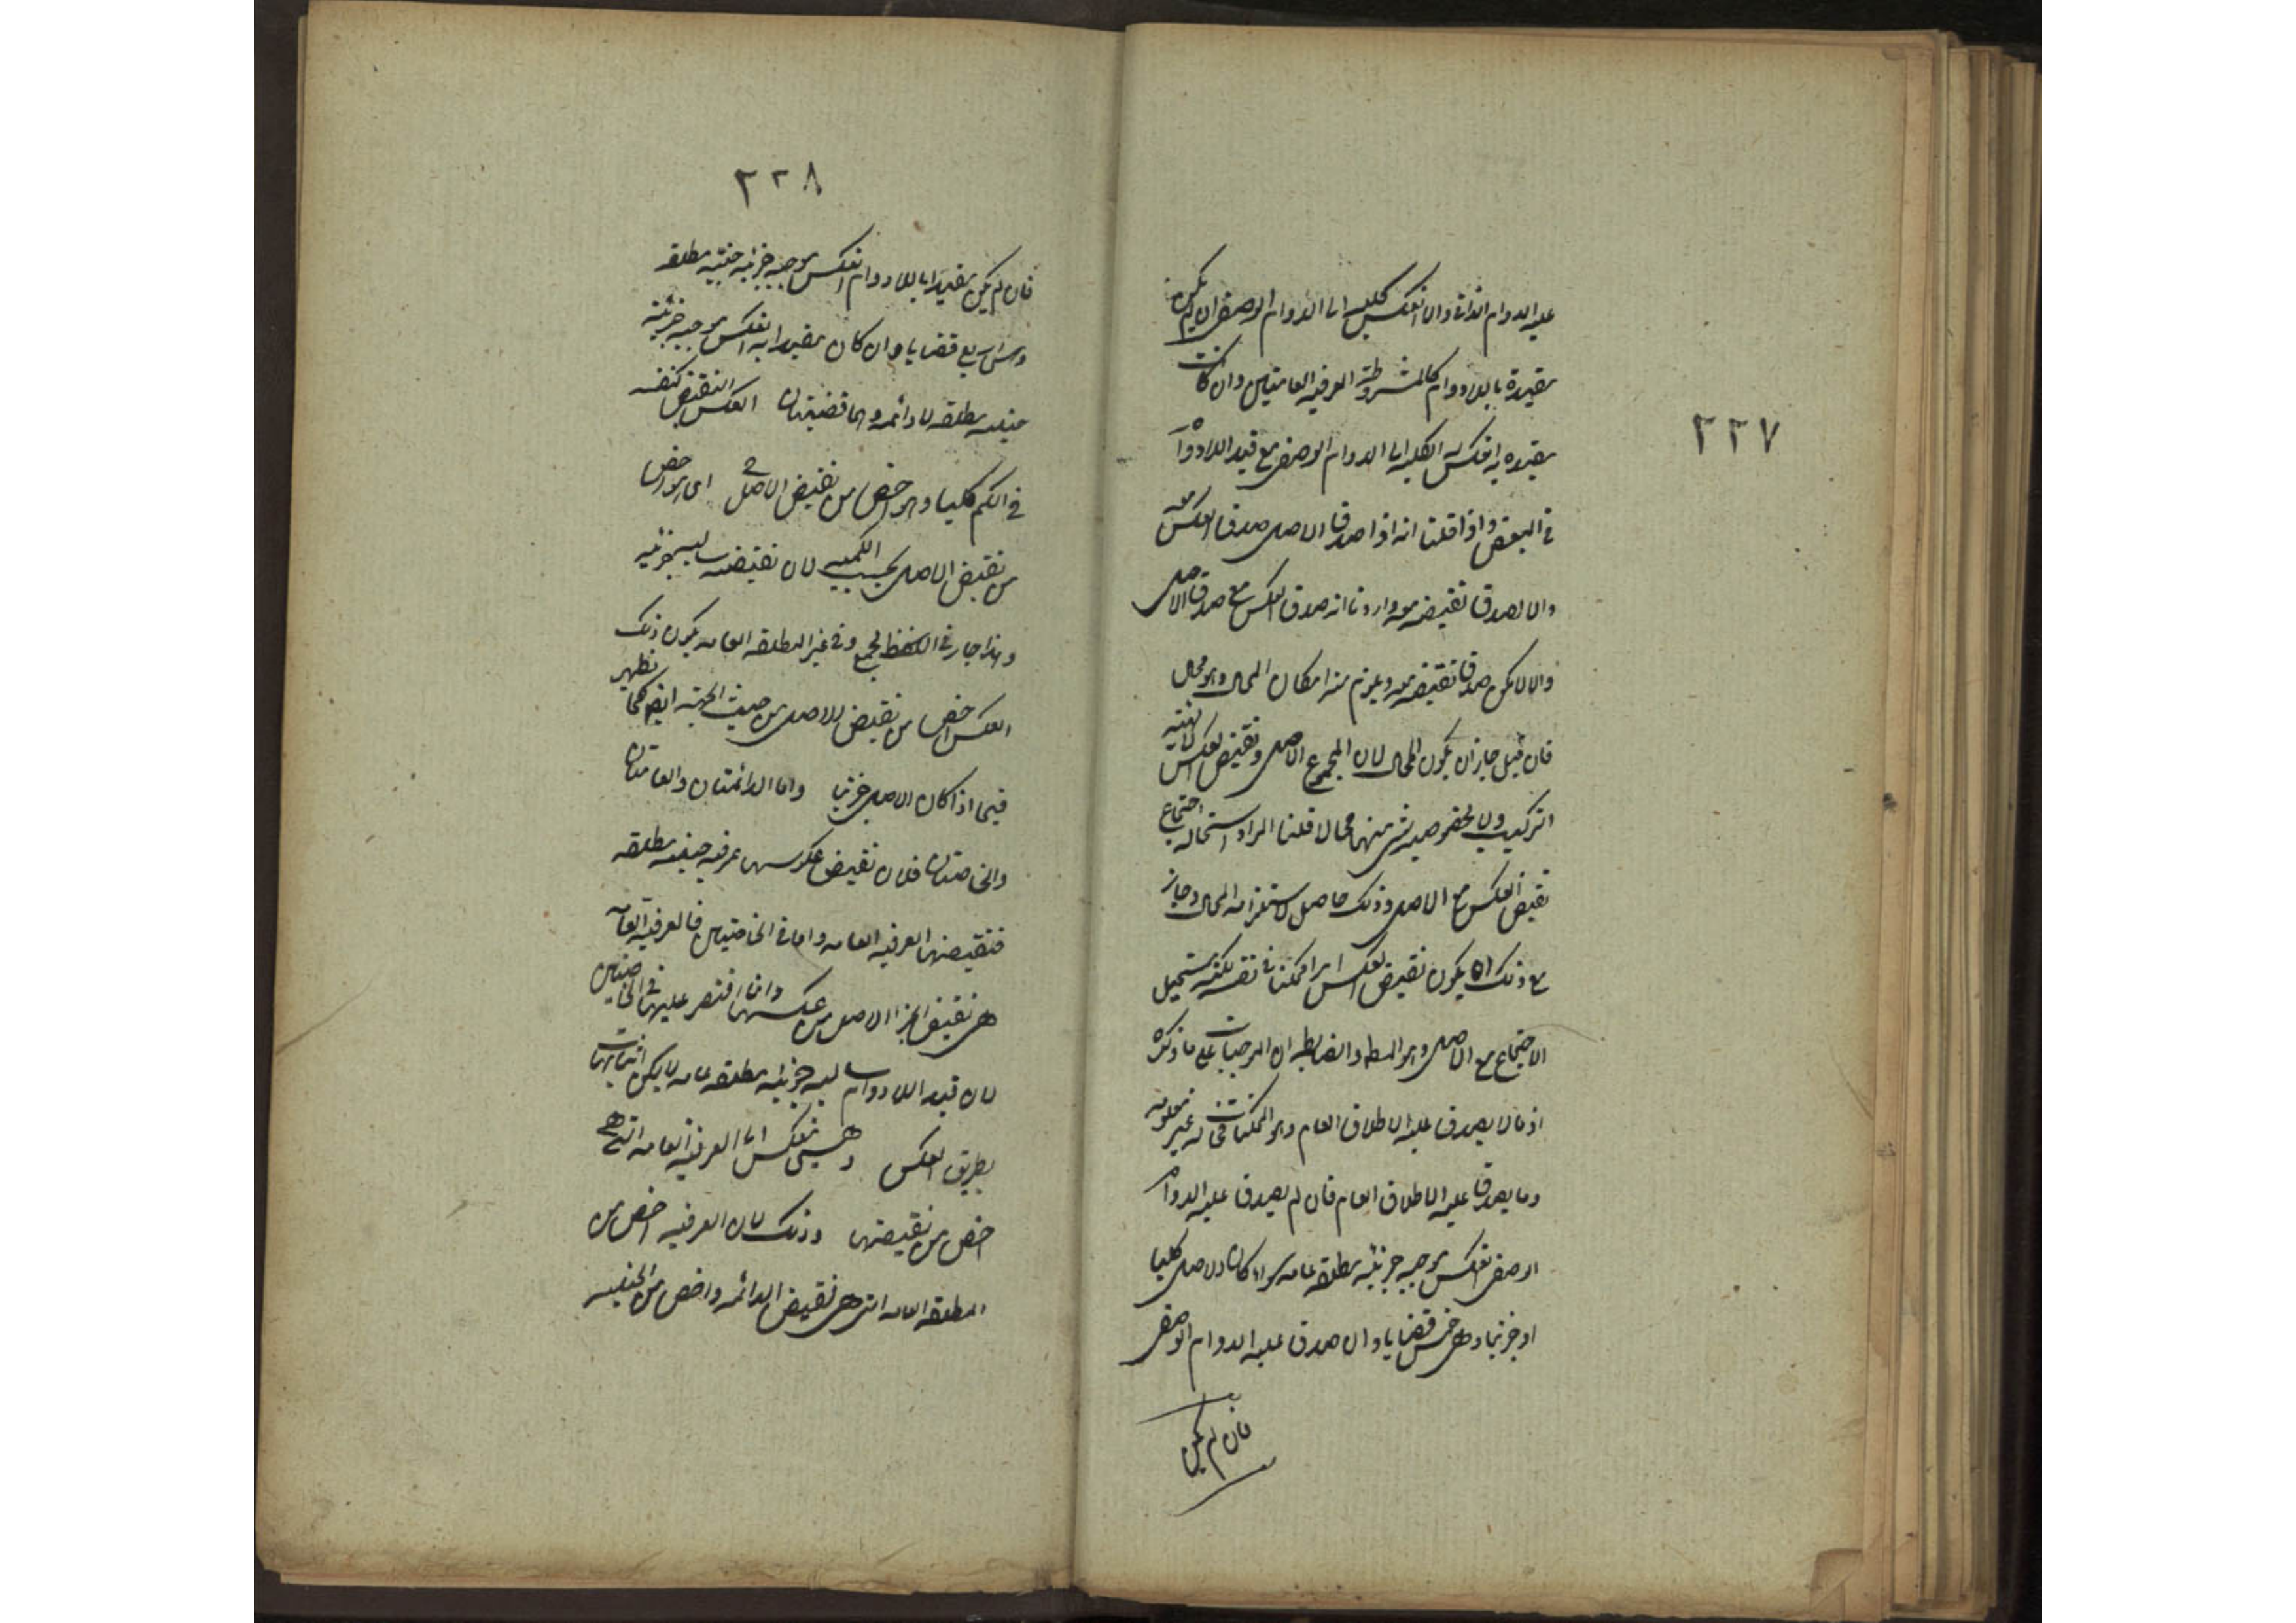 ٢٢٧
عليه الدوام الذاتى والا انعكس كليه الى الدوام الوصفى ان لم يكن
مقيدة باللادوام كالمشروطة العرفيه العامتين وان كانت
مقيده به انعكس الكليه الى الدوام الوصفى مع قيد اللادوام
فى البعض واذا قلنا انه اذا صدق الاصل صدق العكس معه
والا لصدق نقيضه معه واردنا انه صدق العكس مع صدق الاصل
والا لامكن صدق نقيضه معه ويلزم منه امكان المحال وهو محال
فان قيل جاز ان يكون المحال لان المجموع الاصل ونقيض العكس
التركيب ولا بخصوصيه شى منهما محالا قلنا المراد استحاله اجتماع
نقيض العكس مع الاصل وذلك حاصل لاستلزامه المحال وجاز
مع ذلك ان يكون نقيض العكس امرا ممكنا فى نفسه لكنه يستحيل
الاجتماع مع الاصل وهو المط والضابطه ان الموجبات على ما ذكره
اذ ما لا يصدق عليه الاطلاق العام وهو الممكنتان فحاله غير معلومه
وما يصدق عليه الاطلاق العام فان لم يصدق عليه الدوام
الوصفى انعكس موجبه جزئيه مطلقه عامه سواء كان الاصل كليا
او جزئيا وهى خمس قضايا وان صدق عليه الدوام الوصفى
فان لم يكن
٢٢٨
فان لم يكن مقيدا باللادوام انعكس موجبه جزئيه حينيه مطلقه
وهى اربع قضايا وان كان مقيدا به انعكس موجبه جزئيه
حينيه مطلقه لا دائمه وهما قضيتان العكس النقيض
فى الكم كليا وهو اخص من نقيض الاصل اى هو اخص
من نقيض الاصل بحسب الكميه لان نقيضه سالبه جزئيه
وهذا جار فى الجميع وفى غير المطلقه العامه يكون ذلك
العكس اخص من نقيض الاصل من حيث الجهه ايضا كما تظهر
فيما اذا كان الاصل جزئيا واما الدائمتان والعامتان
والخاصتان فلان نقيض عكوسها عرفيه حينيه مطلقه
فنقيضها العرفيه العامه واما فى الخاصتين فالعرفيه العامه
هى نقيض الجزء الاصل من عكسهما وانما اقتصر عليها فى الخاصتين
لان قيد اللادوام سالبه جزئيه مطلقه عامه لا يمكن اثباتها
بطريق العكس وهى تنعكس الى العرفيه العامه التى هى
اخص من نقيضها وذلك لان العرفيه اخص من
المطلقه العامه التى هى نقيض الدائمه واخص من الحينيه